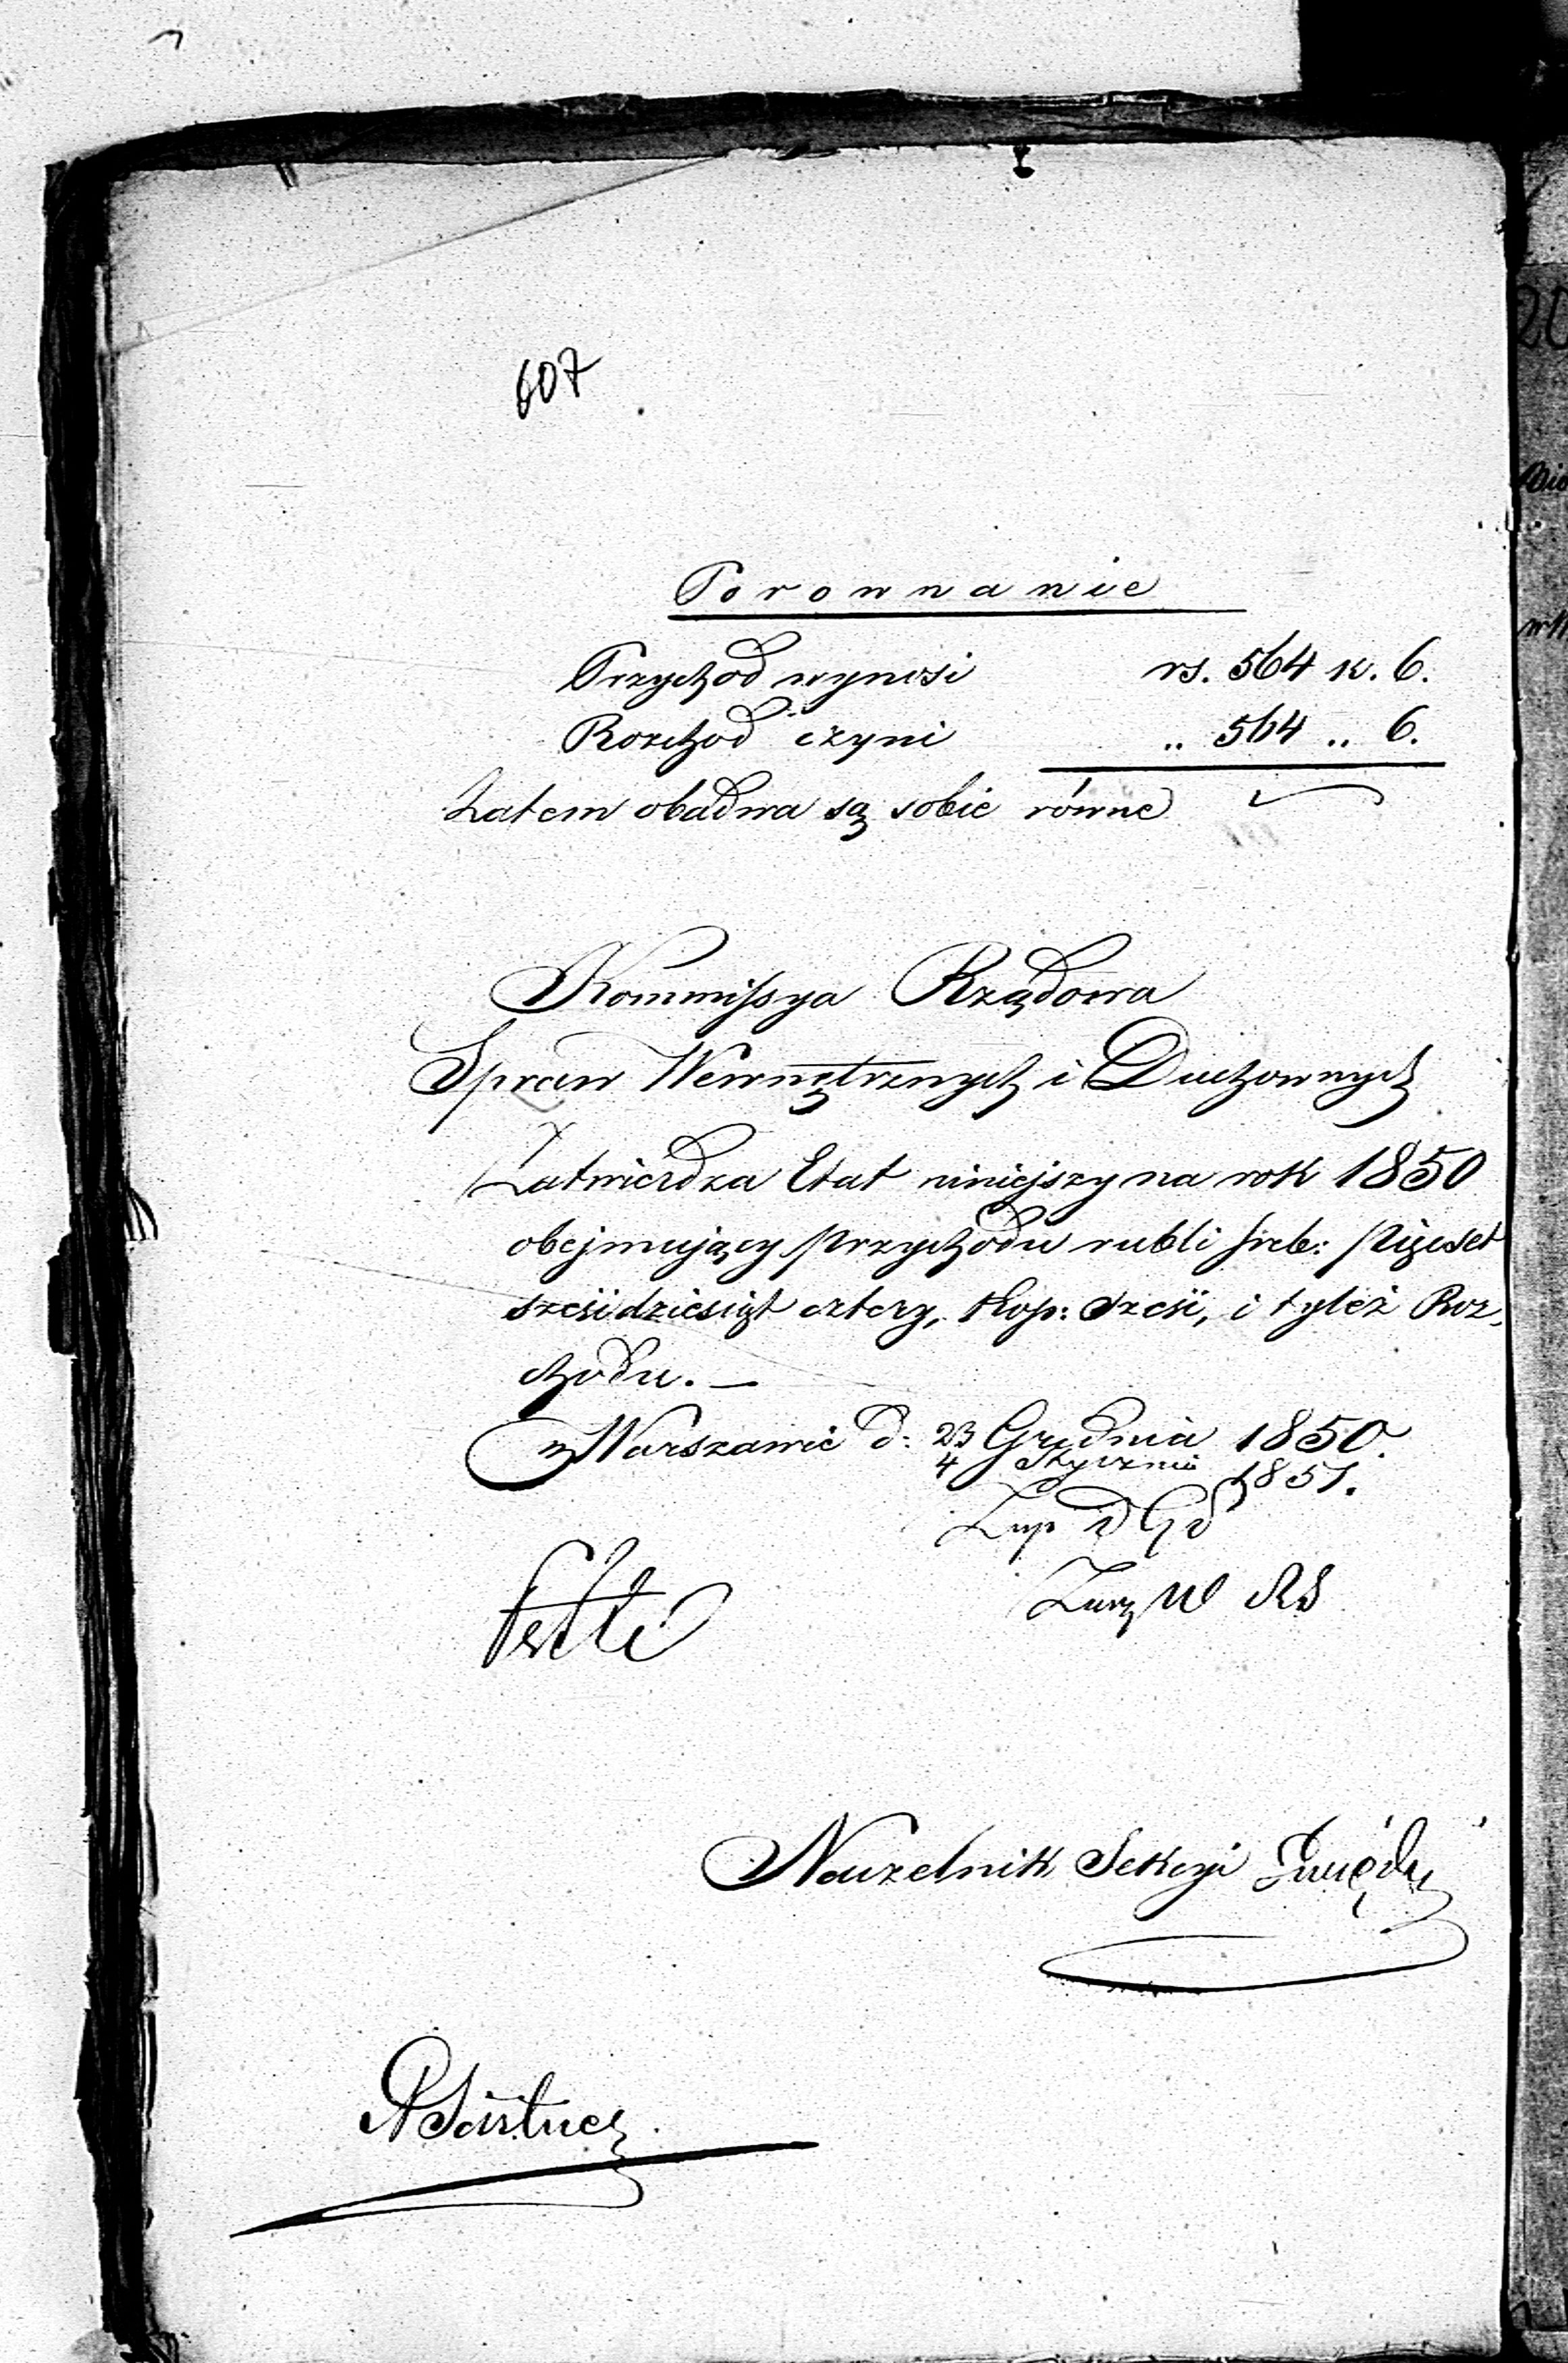 607
Porownanie
Przychod wynosi rs. 564 k. 6.
Rozchod czyni „ 564 „ 6.
Zatem obadwa są sobie równe
Kommissya Rządowa
Spraw Wewnętrznych i Duchownych
Zatwierdza Etat niniejszy na rok 1850
obejmujący przychodu rubli sreb: pięćset
sześćdziesiąt cztery, kop: sześć, i tyleż Roz-
chodu. —
w Warszawie d: 23 Grudnia 1850.
4 Stycznia 1851.
Naczelnik Sekcyi